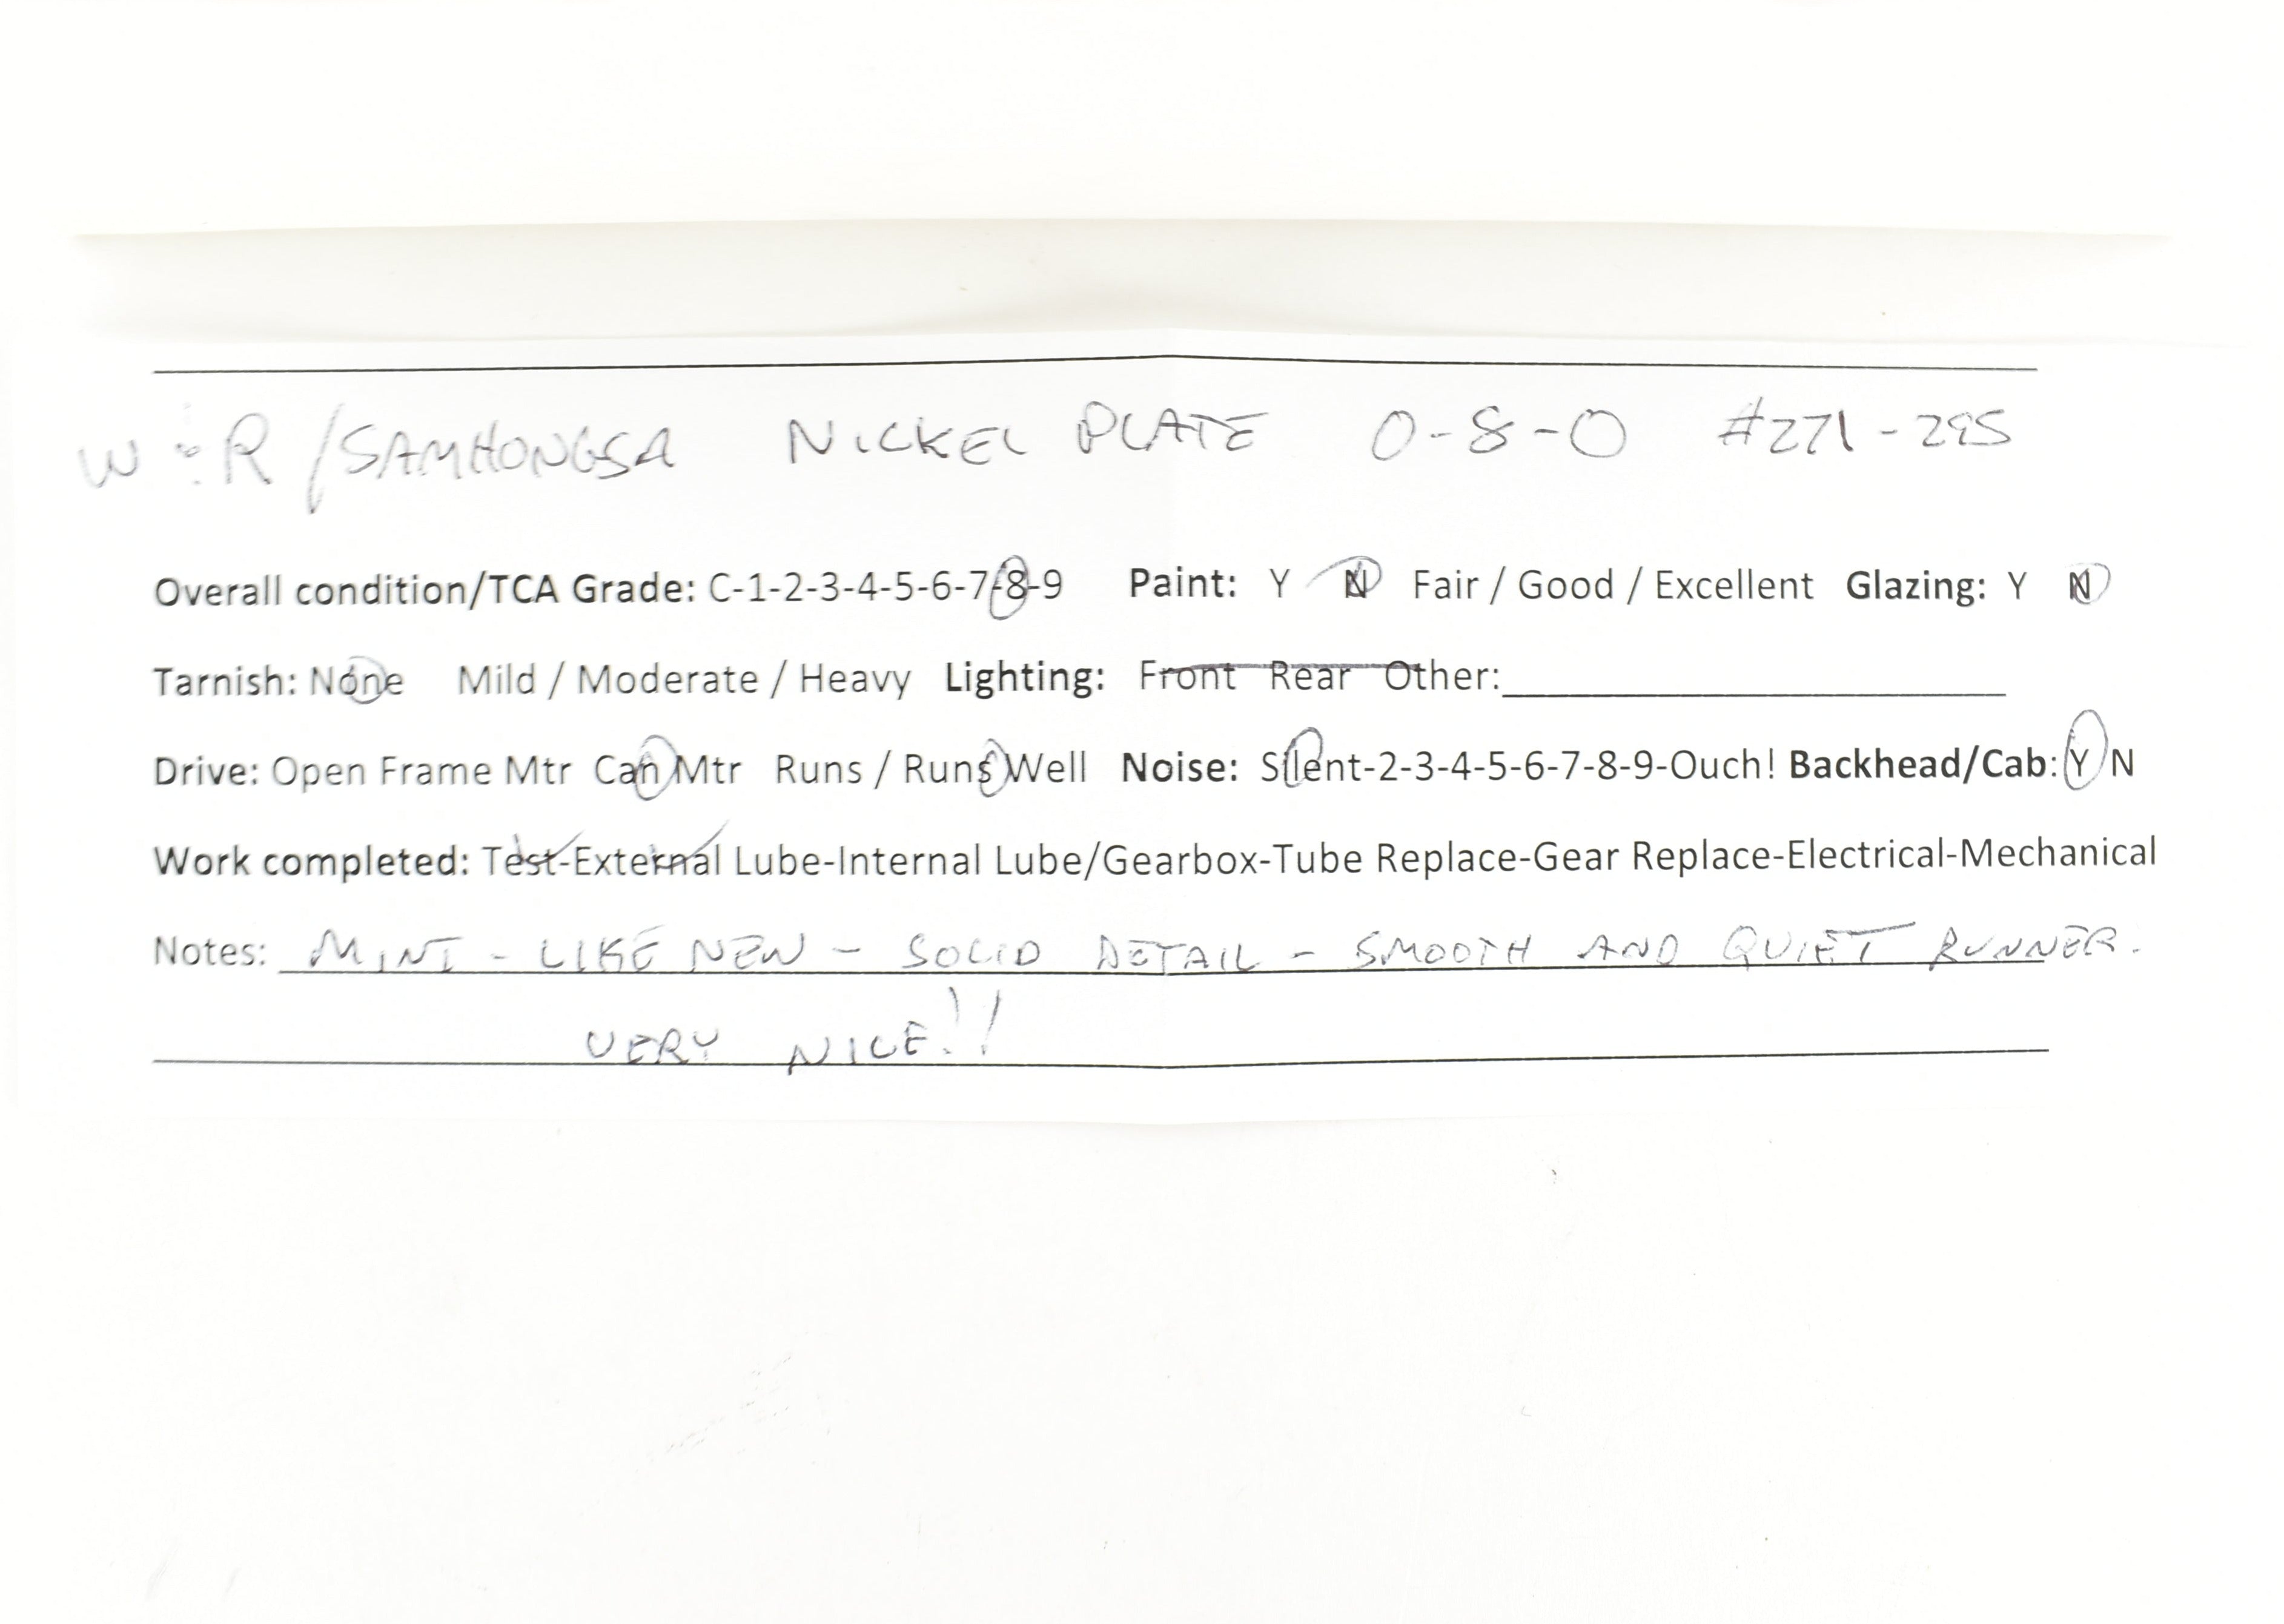 W & R / SAMHONGSA NICKEL PLATE 0-8-0 #271-295
Overall condition/TCA Grade: C-1-2-3-4-5-6-7-8-9 Paint: Y N Fair / Good / Excellent Glazing: Y N
Tarnish: None Mild / Moderate / Heavy Lighting: Front Rear Other:
Drive: Open Frame Mtr Can Mtr Runs / Runs Well Noise: Silent-2-3-4-5-6-7-8-9-Ouch! Backhead/Cab: Y N
Work completed: Test-External Lube-Internal Lube/Gearbox-Tube Replace-Gear Replace-Electrical-Mechanical
Notes: MINT - LIKE NEW - SOLID DETAIL - SMOOTH AND QUIET RUNNER.
VERY NICE!!